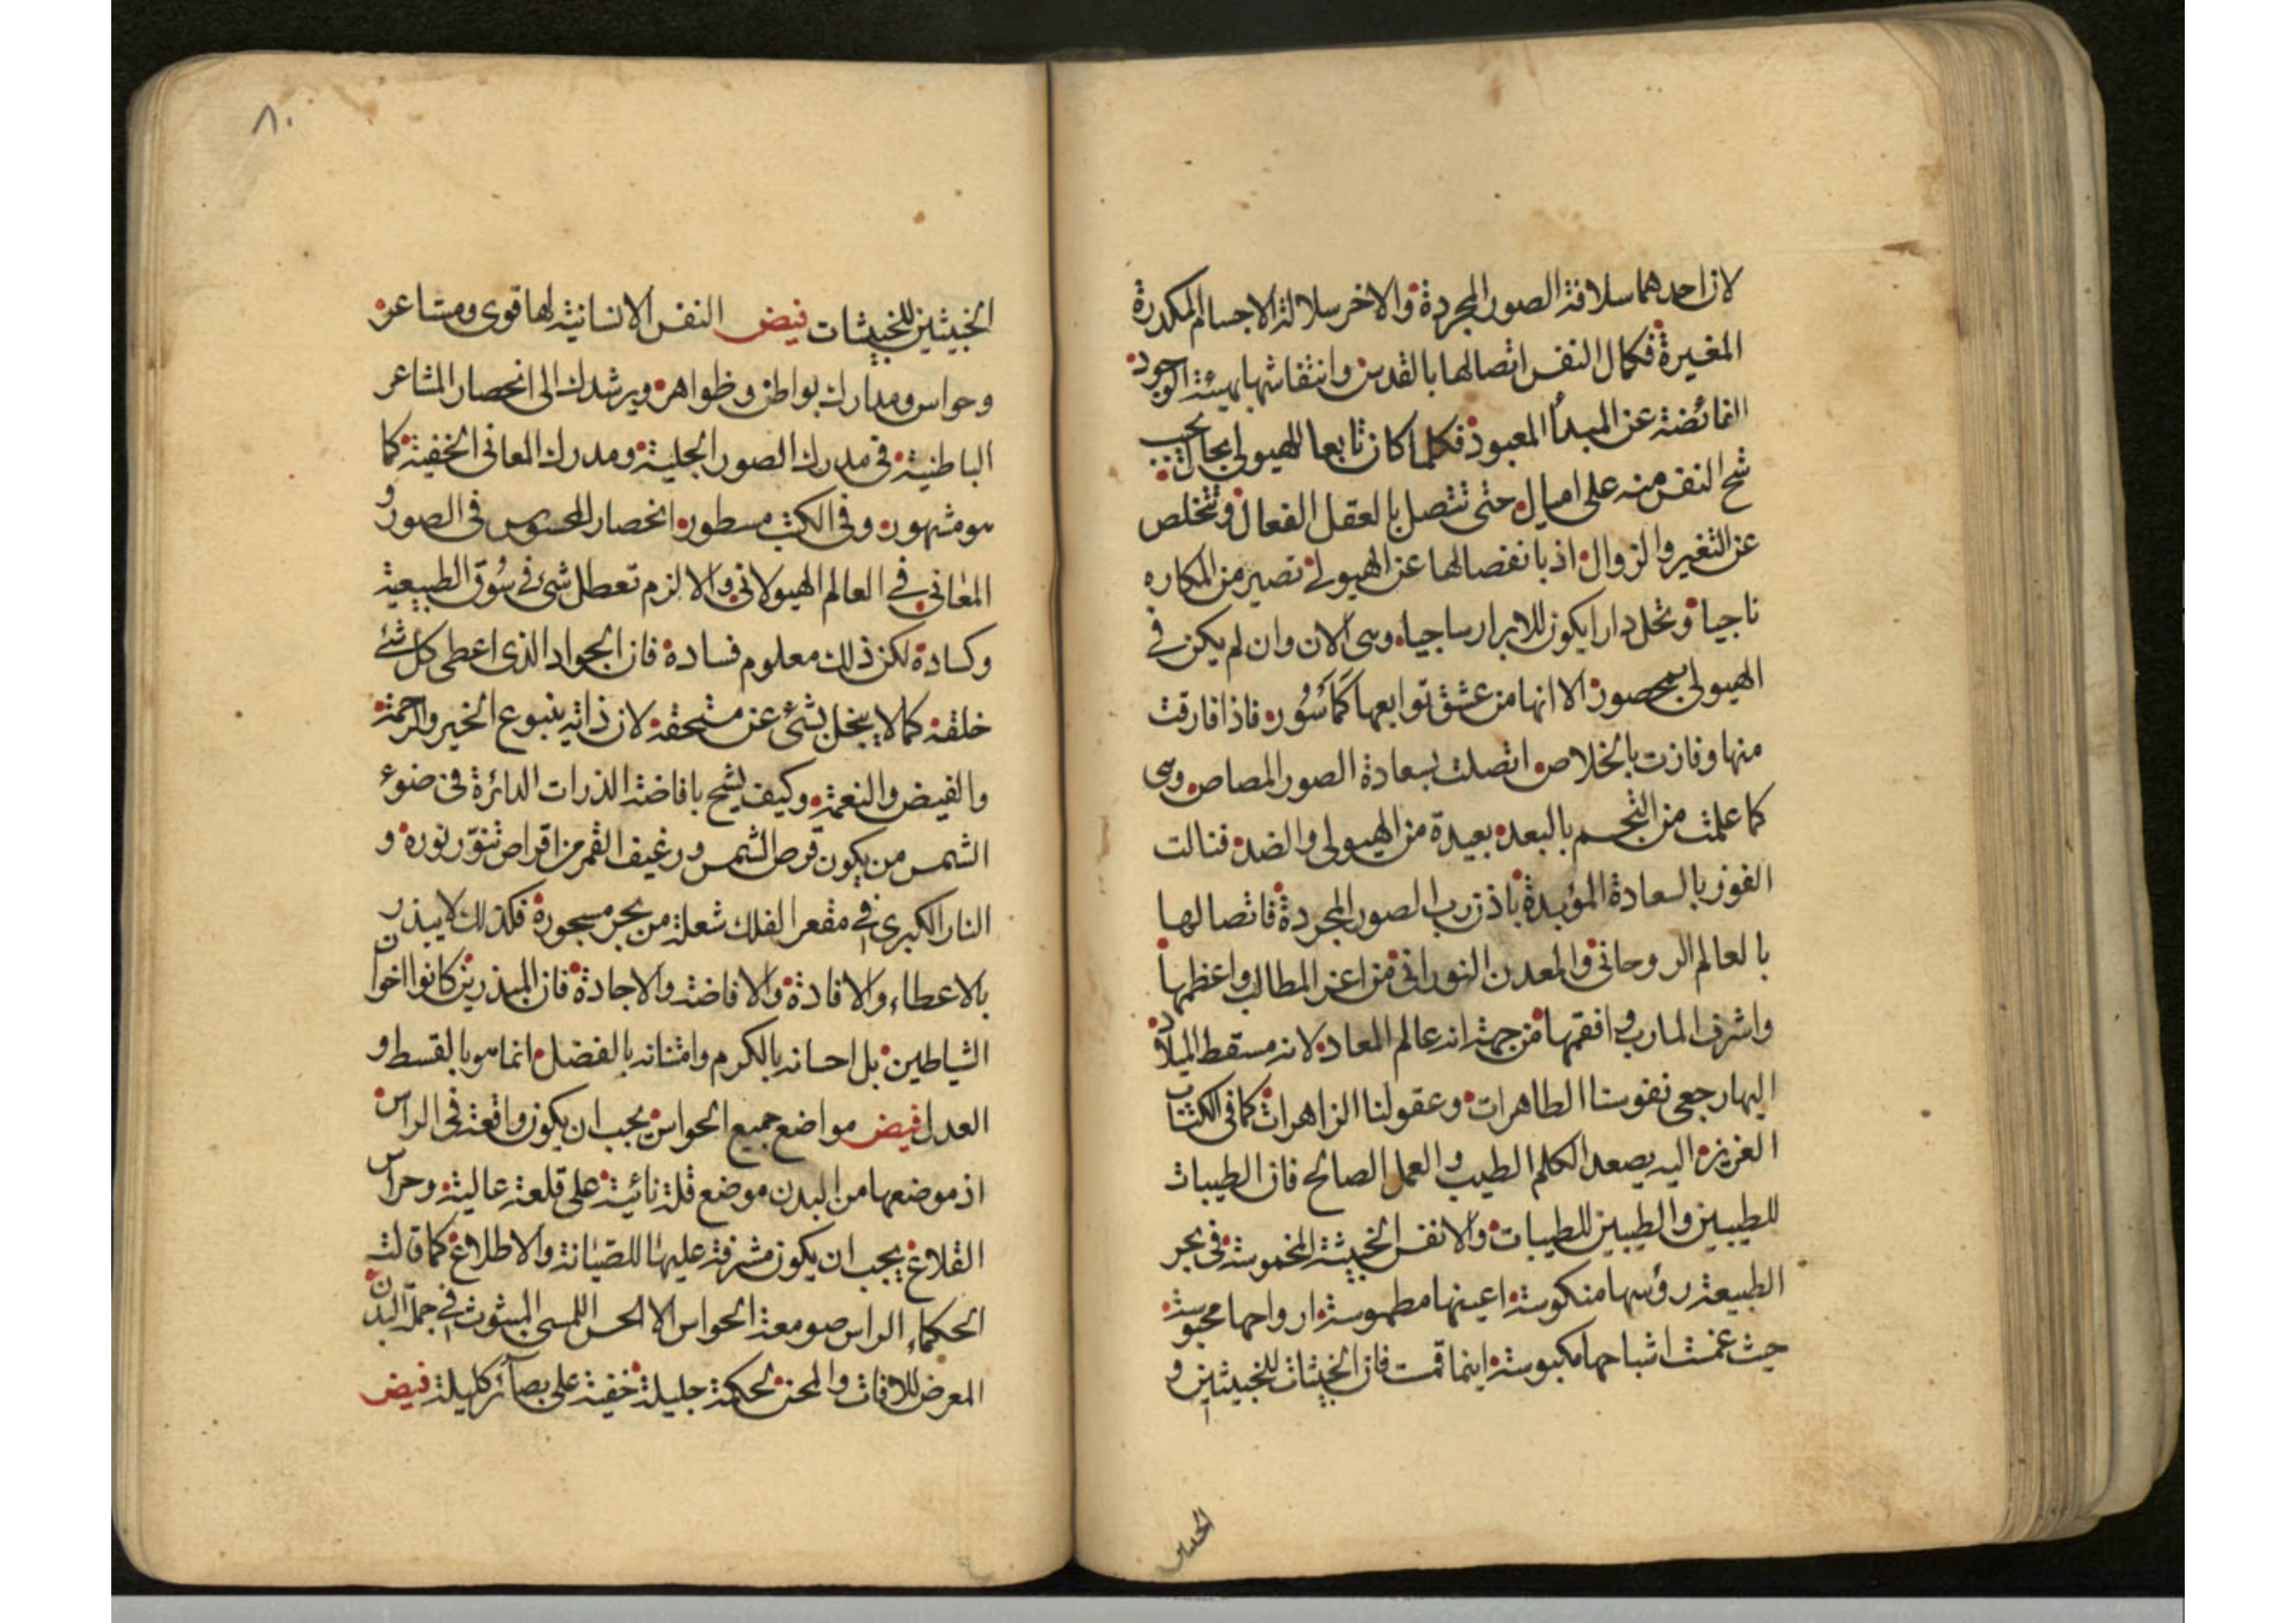 لان احدهما سلافة الصور المجردة والاخر سلالة الاجسام المكدرة
المغيرة فكمال النفس اتصالها بالقدس وانتقاشها بهيئة الوجود
الفائضة عن المبدأ المعبود فكلما كان تابعا للهيولى بحال يجب
شح النفس منه على اميال حتى تتصل بالعقل الفعال وتتخلص
عن التغير والزوال اذ بانفصالها عن الهيولى تصير من المكاره
ناجيا وتحل دارا يكون للابرار ساجيا وهى الان وان لم يكن فى
الهيولى بمحصور الا انها من عشق توابعها كمأسور فاذا فارقت
منها وفازت بالخلاص اتصلت بسعادة الصور المصاص وهى
كما علمت من النجم بالبعد بعيدة من الهيولى والضد فنالت
الفوز بالسعادة المؤبدة باذن رب الصور المجردة فاتصالها
بالعالم الروحانى والمعدن النورانى من اعز المطالب واعظمها
واشرف المارب وافقمها من جهة انه عالم المعاد لانه مسقط الميلاد
اليها رجعى نفوسنا الطاهرات وعقولنا الزاهرات كما فى الكتاب
العزيز اليه يصعد الكلم الطيب والعمل الصالح فان الطيبات
للطيبين والطيبين للطيبات والانفس الخبيثة المغموسة فى بحر
الطبيعة رؤسها منكوسة اعينها مطموسة ارواحها محبوسة
حيث عمت اشباحها مكبوسة اينما قمت فان الخبيثات للخبيثين و
٨٠
الخبيثين للخبيثات فيض النفس الانسانية لها قوى ومشاعر
وحواس ومدارك بواطن وظواهر ويرشدك الى انحصار المشاعر
الباطنية فى مدرك الصور الجلية ومدرك المعانى الخفية كما
هو مشهور وفى الكتب مسطور انحصار المحسوس فى الصور و
المعانى فى العالم الهيولانى والا لزم تعطل شئ فى سوق الطبيعية
وكسادة لكن ذلك معلوم فسادة فان الجواد الذى اعطى كل شئ
خلقه كما لا يبخل بشئ عن مستحقه لان ذاته ينبوع الخير والرحمة
والفيض والنعمة وكيف يشح بافاضة الذرات الدائرة فى ضوء
الشمس من يكون قرص الشمس ورغيف القمر من اقراص تنور نوره و
النار الكبرى فى مقعر الفلك شعلة من بحر مسجورة فكذلك لا يبذر
بالاعطاء والافادة والافاضة والاجادة فان المبذرين كانوا اخوان
الشياطين بل احسانه بالكرم وامتنانه بالفضل انما هو بالقسط و
العدل فيض مواضع جميع الحواس يجب ان يكون واقعة فى الراس
اذ موضعها من البدن موضع قلة نائية على قلعة عالية وحراس
القلاع يجب ان يكون مشرفة عليها للصيانة والاطلاع كما قالت
الحكماء الراس صومعة الحواس الا الحس اللمسى المبثوث فى جملة البدن
المعرض للافات والمحن لحكمة جليلة خفية على بصائر كليلة فيض